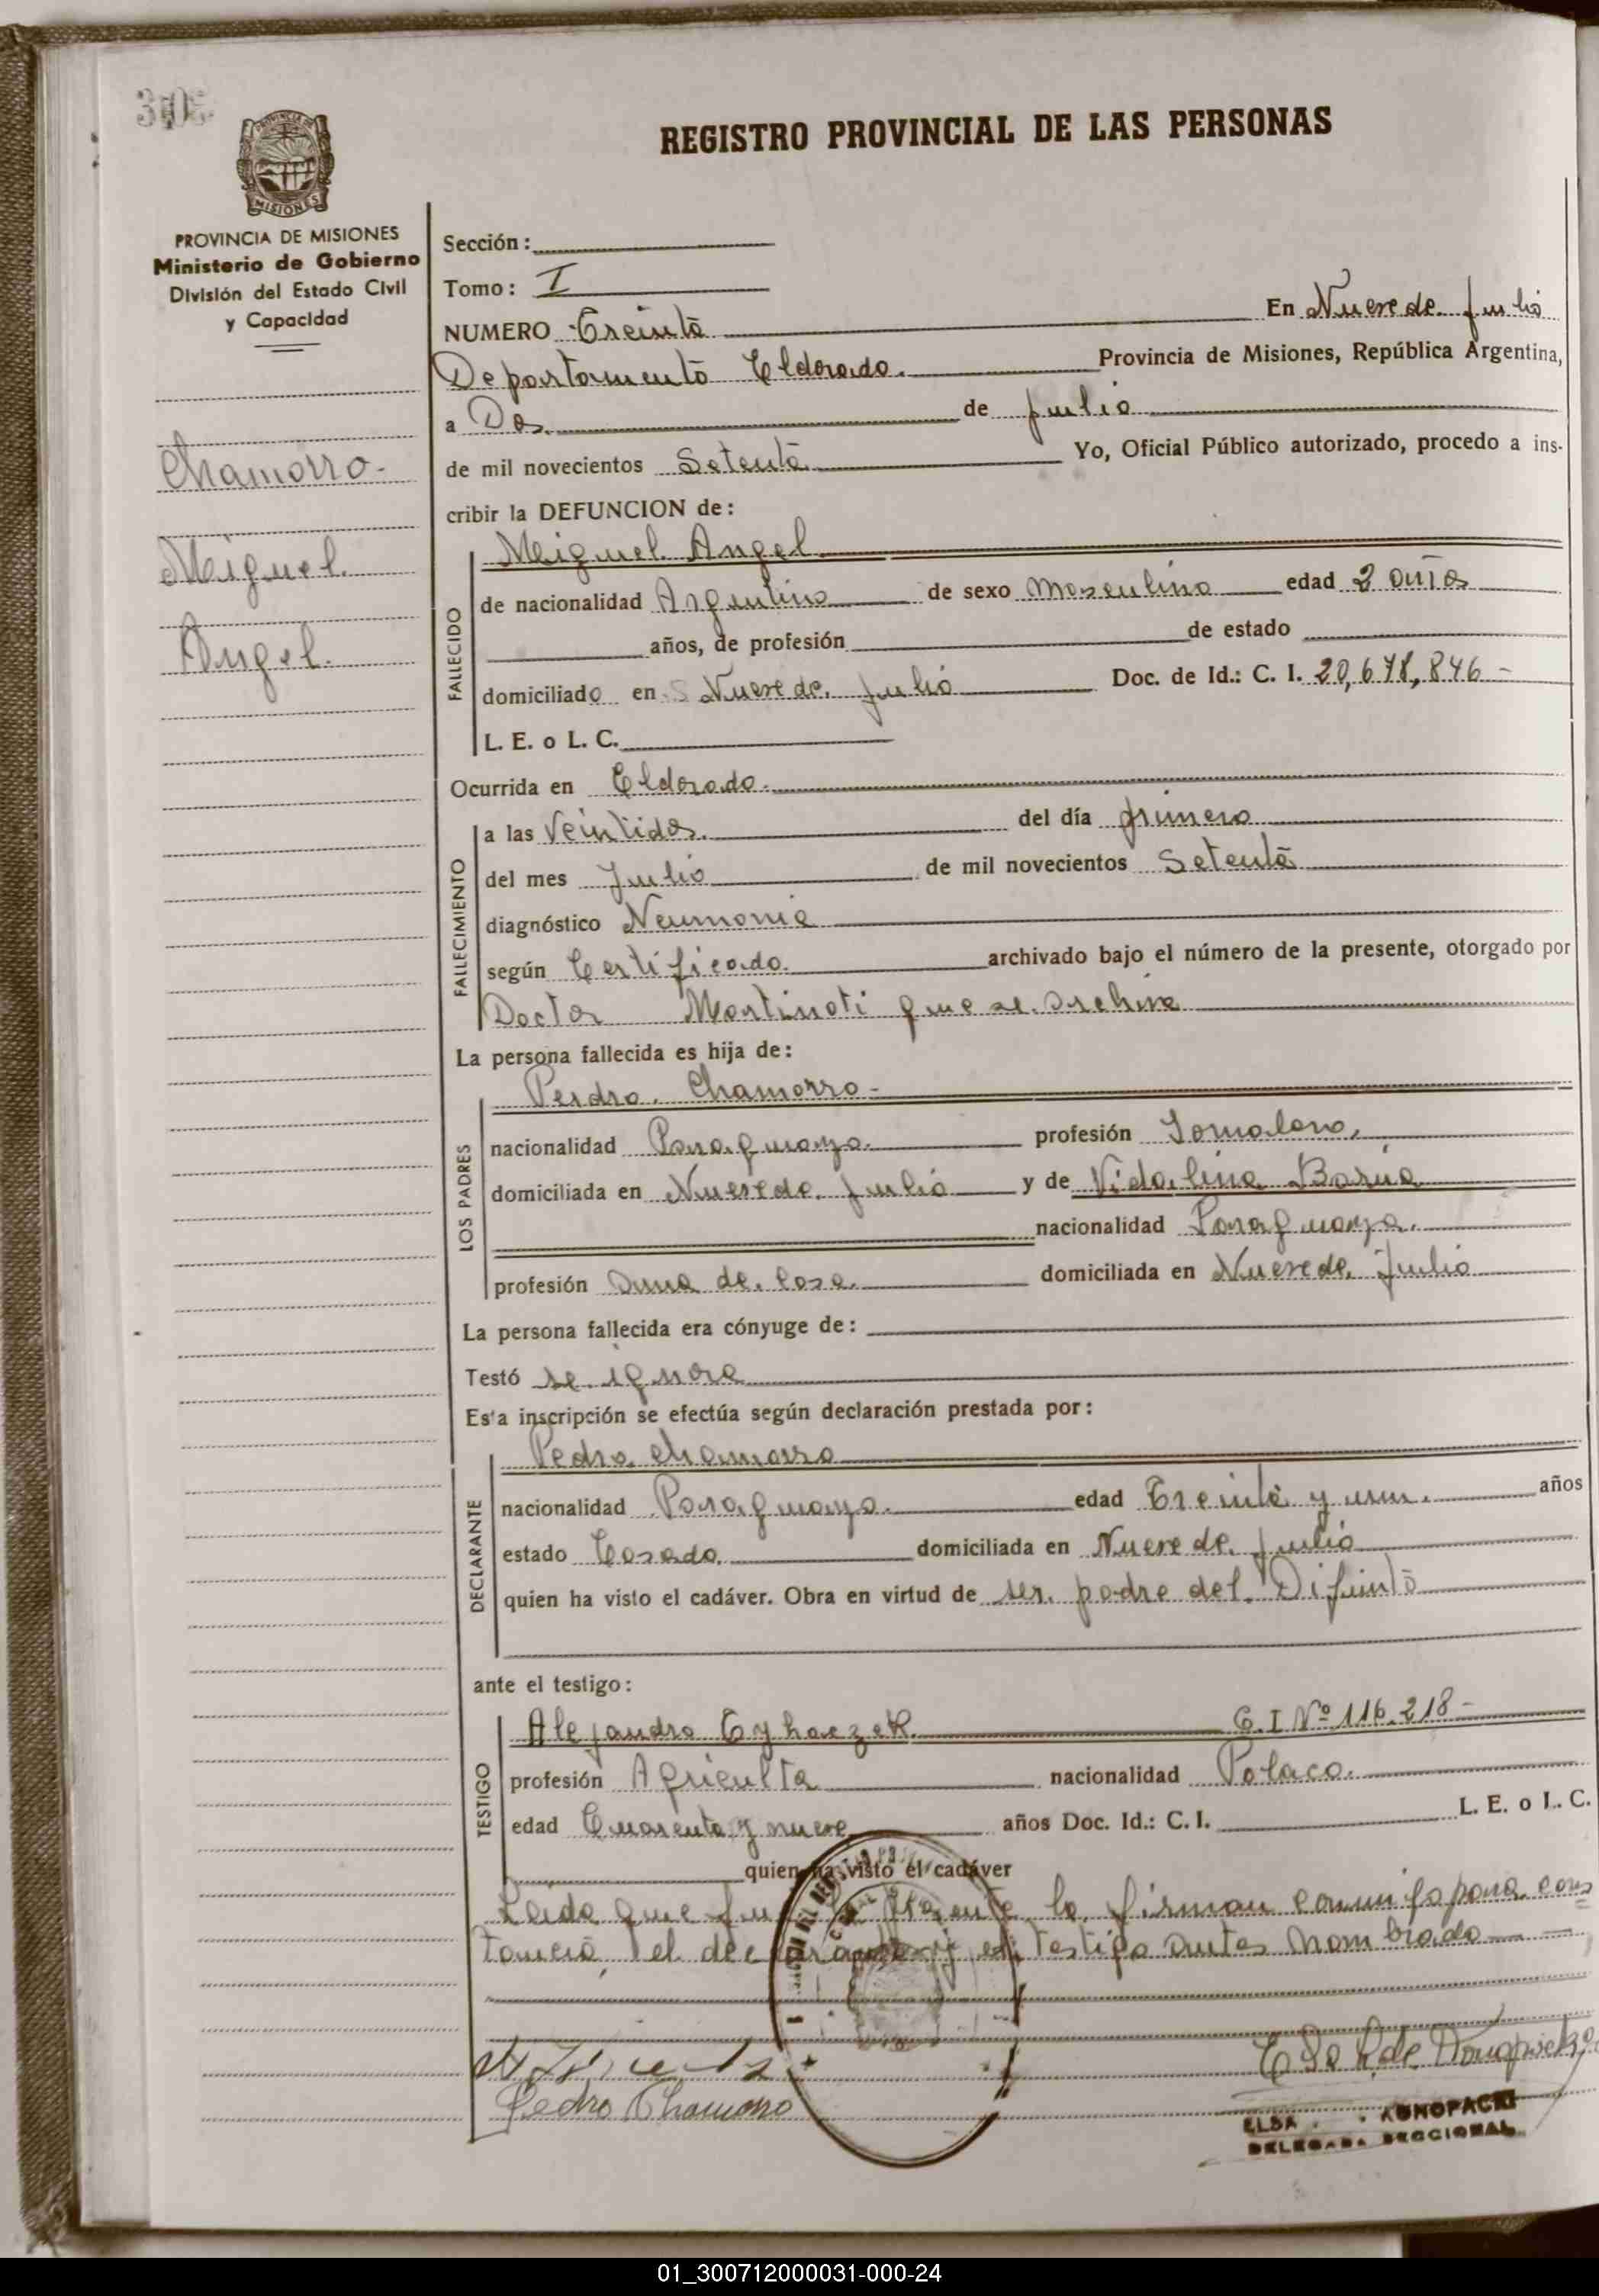 REGISTRO PROVINCIAL DE LAS PERSONAS
MISIONES
PROVINCIA DE MISIONES
Ministerio de Gobierno
División del Estado Civil
y Capacidad
Chamorro.-
Miguel.
Angel.
Sección:
Tomo: I
NUMERO Treinta En Nueve de Julio
Departamento Eldorado. Provincia de Misiones, República Argentina,
a Dos. de Julio
de mil novecientos Setenta Yo, Oficial Público autorizado, procedo a ins-
cribir la DEFUNCION de:
FALLECIDO
Miguel Angel
de nacionalidad Argentino de sexo Masculino edad 2 años
años, de profesión de estado
domiciliado en Nueve de Julio Doc. de Id.: C. I. 20,678,846 -
L. E. o L. C.
Ocurrida en Eldorado.
FALLECIMIENTO
a las Veintidos. del día primero
del mes Julio de mil novecientos Setenta
diagnóstico Neumonia
según Certificado. archivado bajo el número de la presente, otorgado por
Doctor Martinoti que se archiva
La persona fallecida es hija de:
LOS PADRES
Perdro. Chamorro -
nacionalidad Paraguaya. profesión Jornalero,
domiciliada en Nueve de Julio y de Vidalina Baria
nacionalidad Paraguaya.
profesión Ama de casa. domiciliada en Nueve de Julio
La persona fallecida era cónyuge de:
Testó se ignora
Esta inscripción se efectúa según declaración prestada por:
DECLARANTE
Pedro Chamorro
nacionalidad Paraguaya. edad Treinta y un. años
estado Casado. domiciliada en Nueve de Julio
quien ha visto el cadáver. Obra en virtud de ser. padre del. Difunto
ante el testigo:
TESTIGO
Alejandro C.I Nº 116.218 -
profesión Agriculta nacionalidad Polaco.
edad Cuarenta y nueve años Doc. Id.: C. I. L. E. o L. C.
quien ha visto el cadáver
Leida que la firman conmigo para cons
tancia, el declarante y el testigo antes nombrado
Pedro Chamorro
ELSA
DELEGADA SECCIONAL
01_300712000031-000-24